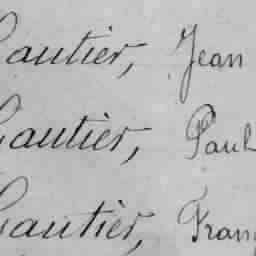 Gautier, Jean
Gautier, Paul
Gautier,